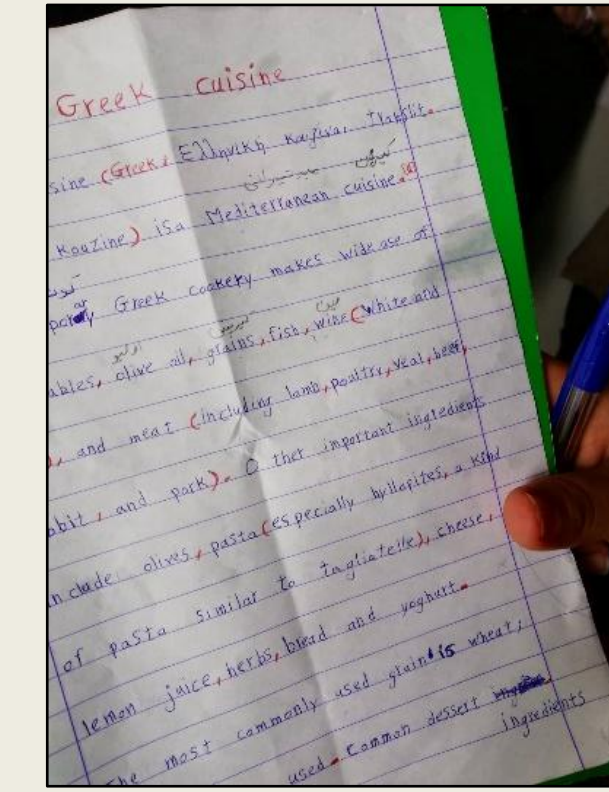 Greek cuisine
sine (Greek, Ελληνικη
Kouzine) is a Mediterranean cuisine.
Greek cookery makes wide use of
ables, olive oil, grains, fish, wine (white and
and meat (including lamb, poultry, veal, beef,
abbit, and pork). Other important ingredients
include olives, pasta (especially hyllopites, a kind
of pasta similar to tagliatelle), cheese,
lemon juice, herbs, bread and yoghurt.
The most commonly used grain is wheat;
used. Common dessert
ingredients